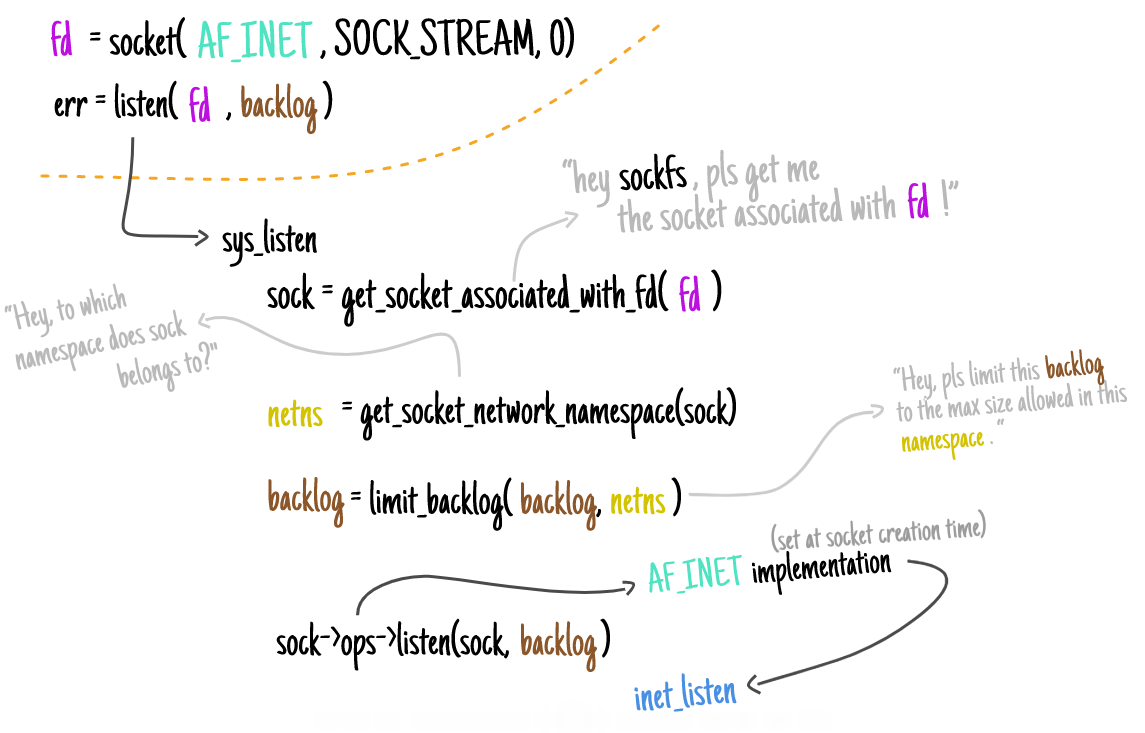 fd = socket( AF_INET , SOCK_STREAM, 0)
err = listen( fd , backlog )
"hey sockfs , pls get me
the socket associated with fd !"
sys_listen
sock = get_socket_associated_with_fd( fd )
"Hey, to which
namespace does sock
belongs to?"
netns = get_socket_network_namespace(sock)
"Hey, pls limit this backlog
to the max size allowed in this
namespace ."
backlog = limit_backlog( backlog, netns )
(set at socket creation time)
AF_INET implementation
sock->ops->listen(sock, backlog )
inet_listen